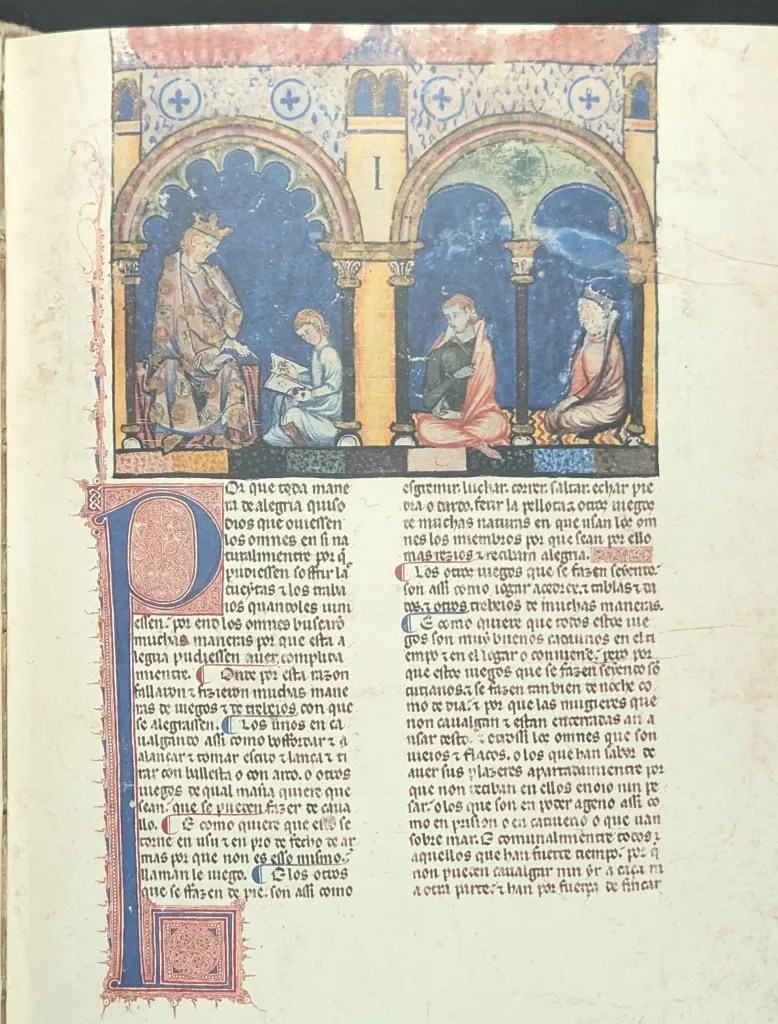 I
POr que toda mane
ra de alegria quiso
dios que ouiessen
los omnes en si na
turalmientre por q̃
pudiessen soffrir las
cueytas ⁊ los traba
ios quandoles uini
essen. por end los omnes buscaron
muchas maneras por que esta a
legria pudiessen auer complida
mientre. Onde por esta razon
fallaron ⁊ fizieron muchas mane
ras de iuegos ⁊ de trebeios con que
se alegrassen. Los unos en ca
ualgando assi como bofordar ⁊ a
alançar ⁊ tomar escud ⁊ lança ⁊ ti
rar con ballesta o con arco. o otros
iuegos de qual maña quiere que
sean. que se pueden fazer de caua
llo. E como quiere que esso se
torne en usu ⁊ en pro de fecho de ar
mas por que non es esso mismo.
llaman le iuego. E los otros
que se ffazen de pie. son assi como
esgremir. luchar. correr. saltar. echar pie
dra o dardo. ferir la pellota. ⁊ otros iuegos
de muchas naturas en que usan los om
nes los miembros por que sean por ello
mas rezios ⁊ reciban alegria.
Los otros iuegos que se fazen seyendo.
son assi como iogar açedrex. ⁊ tablas ⁊ da
dos. ⁊ otros trebeios de muchas maneras.
E como quiere que todos estos iue
gos son muy buenos cadaunos en el ti
empo ⁊ en el logar o conuiene. pero por
que estos iuegos que se fazen seyendo son
cutianos. ⁊ se fazen tan bien de noche co
mo de dia. ⁊ por que las mugieres que
non caualgan ⁊ estan encerradas an a
usar desto. ⁊ otrossi los omnes que son
uieios ⁊ flacos. o los que han sabor de
auer sus plazeres apartadamientre por
que non reciban en ellos enoio nin pe
sar. o los que son en poder ageno assi co
mo en prision o en catiuerio o que uan
sobre mar. E comunalmientre todos
aquellos que han fuerte tiempo. por q̃
non pueden caualgar nin yr a caça ni
a otra parte. ⁊ han por fuerça de fincar